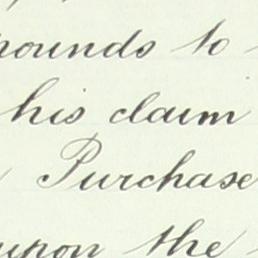 pounds to
his claim
Purchase
upon the